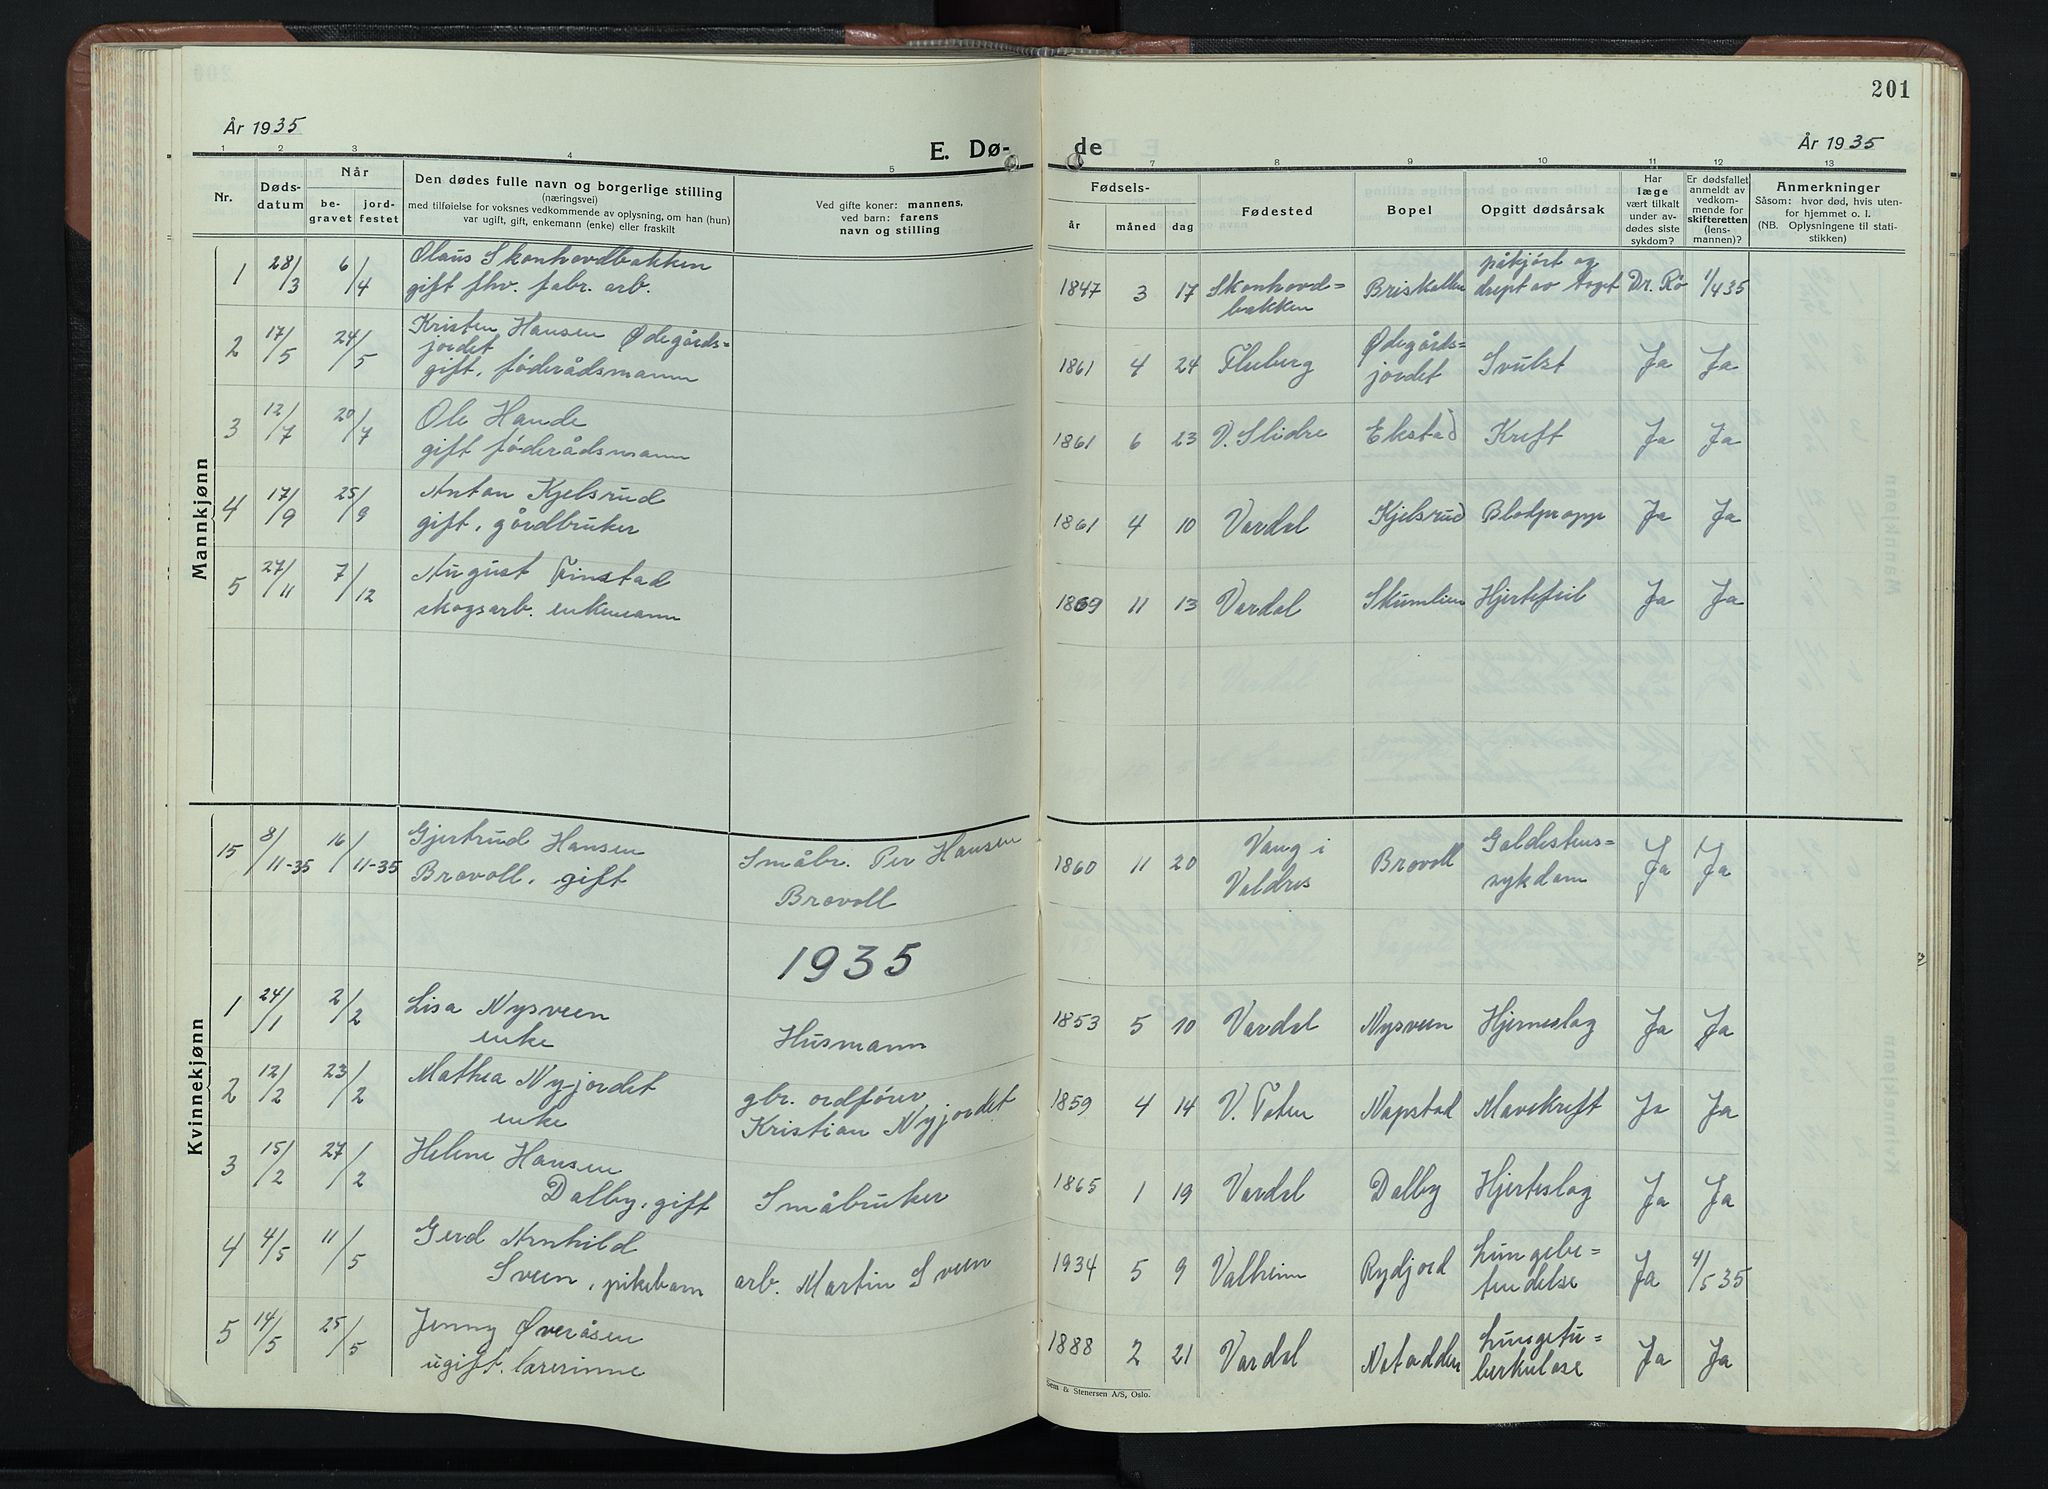 201
År 1935
E. Dø-
de
År 1935
1 2 3 4 5
7 8 9 10 11 12 13
Nr.
Døds-
datum
Når
be-
gravet
jord-
festet
Den dødes fulle navn og borgerlige stilling
(næringsvei)
med tilføielse for voksnes vedkommende av oplysning, om han (hun)
var ugift, gift, enkemann (enke) eller fraskilt
Ved gifte koner: mannens,
ved barn: farens
navn og stilling
Fødsels-
år måned dag
Fødested
Bopel
Opgitt dødsårsak
Har
læge
vært tilkalt
under av-
dødes siste
sykdom?
Er dødsfallet
anmeldt av
vedkom-
mende for
skifteretten
(lens-
mannen)?
Anmerkninger
Såsom: hvor død, hvis uten-
for hjemmet o. l.
(NB. Oplysningene til stati-
stikken)
Mannkjønn
1 28/3 6/4 Olaus Skonhovdbakken
gift fhv. fabr. arb.
1847 3 17 Skonhovd=
bakken
Briskallen
påkjørt og
drept av toget
Dr. Rø 1/4 35
2 17/5 24/5 Kristen Hansen Ødegårds=
jordet
gift, føderådsmann
1861 4 24 Fluberg
Ødegårds=
jordet
Svulst Ja Ja
3 12/7 20/7 Ole Hande
gift føderådsmann
1861 6 23 V. Slidre Ekstad Kreft Ja Ja
4 17/9 25/9 Anton Kjelsrud
gift, gårdbruker
1861 4 10 Vardal Kjelsrud Blodpropp Ja Ja
5 27/11 7/12 August Finstad
skogsarb. enkemann
1869 11 13 Vardal Skumlien Hjertefeil Ja Ja
Kvinnekjønn
15 8/11-35 16/11-35 Gjertrud Hansen
Brovoll, gift
Småbr. Per Hansen
Brovoll
1860 11 20 Vang i
Valdres
Brovoll
Galdestens=
sykdom
Ja Ja
1935
1 24/1 2/2 Lisa Nysveen
enke
Husmann
1853 5 10 Vardal Nysveen Hjerneslag Ja Ja
2 12/2 23/2 Mathea Nyjordet
enke
gbr. ordfører
Kristian Nyjordet
1859 4 14 V. Toten Napstad Mavekreft Ja Ja
3 15/2 27/2 Helene Hansen
Dalby, gift
Småbruker
1865 1 19 Vardal Dalby Hjerteslag Ja Ja
4 4/5 11/5 Gerd Arnhild
Sveen, pikebarn
arb. Martin Sveen
1934 5 9 Valheim Rydjord
Lungebe=
tendelse
Ja 4/5 35
5 14/5 25/5 Jenny Øveråsen
ugift. lærerinne
1888 2 21 Vardal Notodden
Lungetu=
berkulose
Ja Ja
Sem & Stenersen A/S, Oslo.